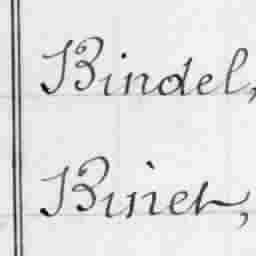 Bindel,
Binet,